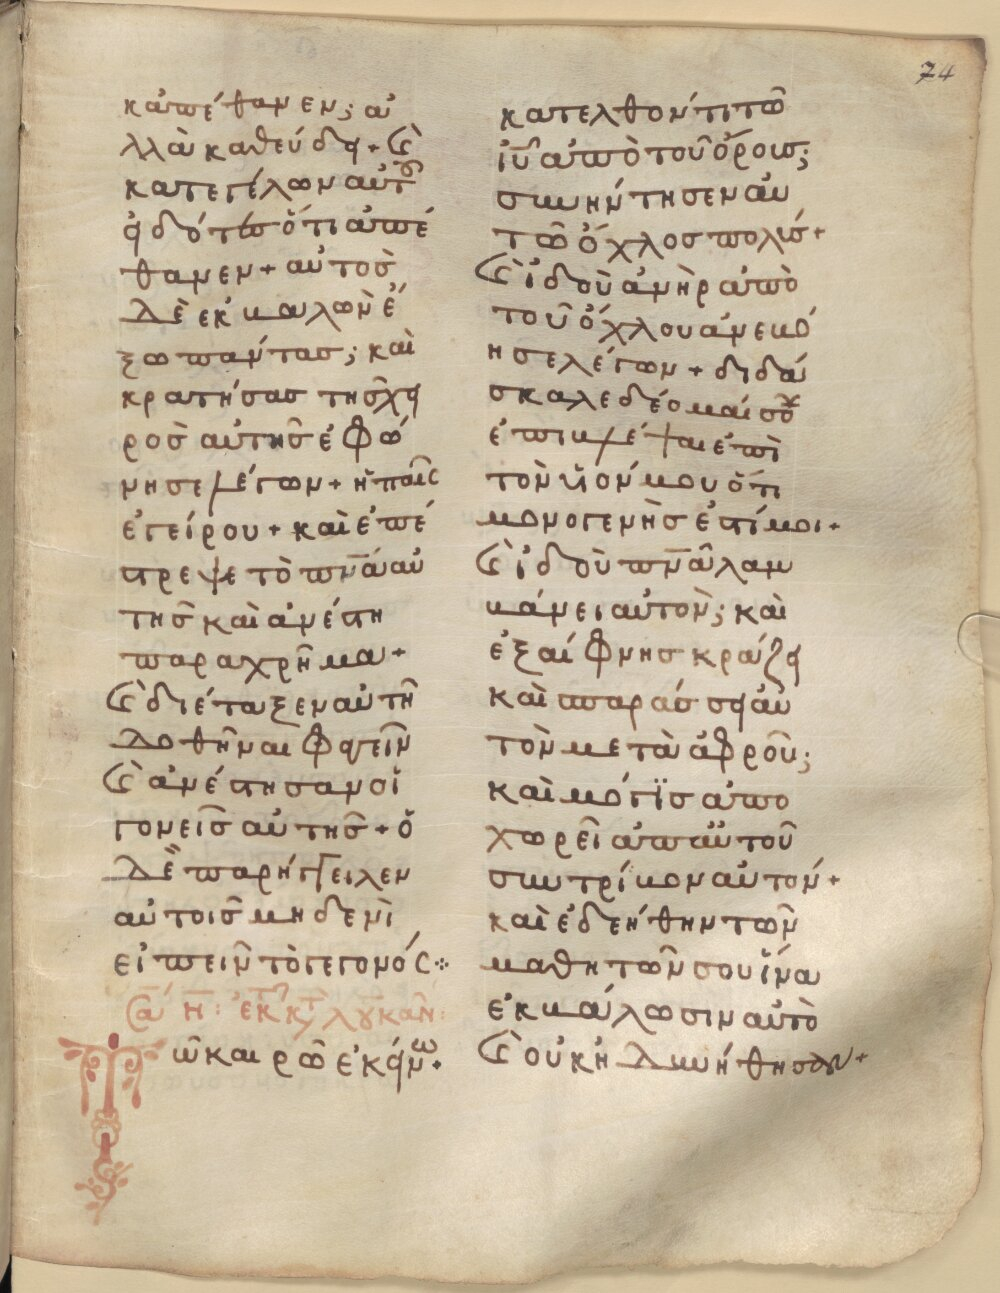 74
κἀπέθανεν; ἀ
λλὰ καθεύδει + καὶ
κατεγέλων αὐτοῦ
εἰδότες ὅτι ἀπέ
θανεν + αὐτὸς
δὲ ἐκβαλὼν ἔ
ξω πάντας; καὶ
κρατήσας τῆς χει
ρὸς αὐτῆς ἐφώ
νησε λέγων + ἡ παῖς
ἐγείρου + καὶ ἐπέ
στρεψε τὸ πνᾶ αὐ
τῆς καὶ ἀνέστη
παραχρῆμα +
καὶ διέταξεν αὐτῆ
δοθῆναι φαγεῖν
καὶ ἀνέστησαν οἱ
γονεῖς αὐτῆς + ὁ
δὲ παρήγγειλεν
αὐτοῖς μηδενὶ
εἰπεῖν τὸ γεγονός
Σα Η: ἐκ τοῦ κτ λουκᾶν:
Τῶ καιρῶ ἐκείνω +
κατελθόντι τῶ
ιῦ ἀπὸ τοῦ ὄρους;
συνήντησεν αὐ
τῶ ὄχλος πολύς +
καὶ ἰδοὺ ἀνὴρ ἀπὸ
τοῦ ὄχλου ἀνεβό
ησε λέγων + διδά
σκαλε δέομαί σου
ἐπιβλέψαι ἐπὶ
τὸν υἱόν μου ὅτι
μονογενὴς ἐστί μοι +
καὶ ἰδοὺ πνᾶ λαμ
βάνει αὐτὸν; καὶ
ἐξαίφνης κράζει
καὶ σπαράσσει αὐ
τὸν μετὰ ἀφροῦ;
καὶ μόγϊς ἀπο
χωρεῖ ἀπ αὐτοῦ
συντρίβον αὐτόν +
καὶ ἐδεήθην τῶν
μαθητῶν σου ἵνα
ἐκβάλωσιν αὐτὸ
καὶ οὐκ ἠδυνήθησαν +